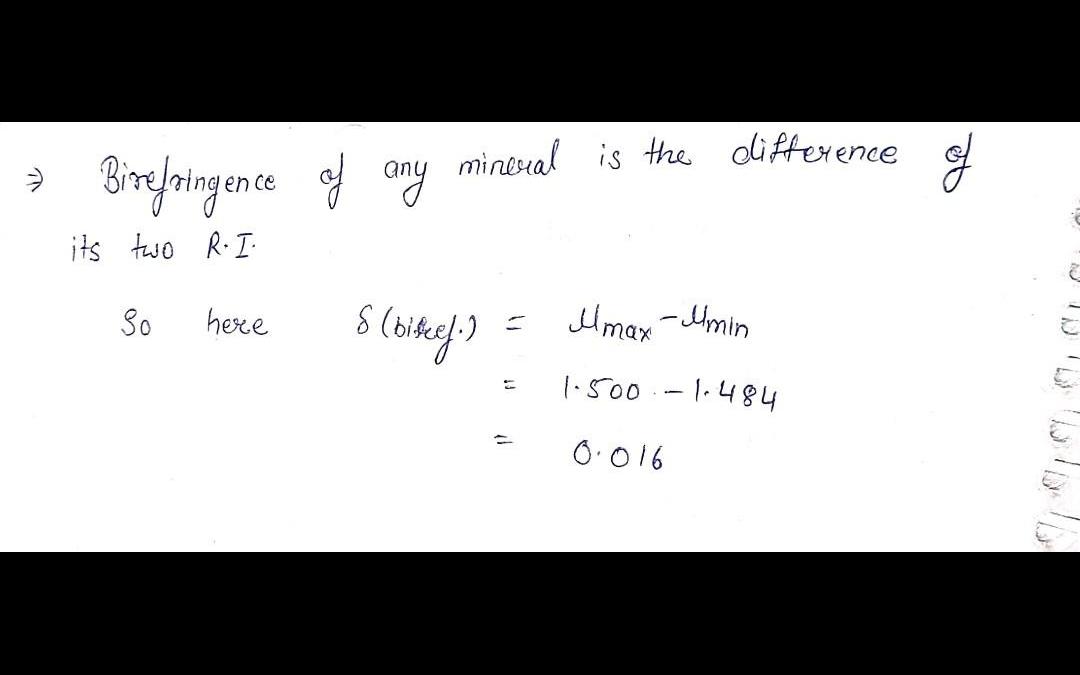 ⇒ Birefringence of any mineral is the difference of
its two R.I.
So here δ (biref.) = μmax - μmin
= 1.500 - 1.484
= 0.016